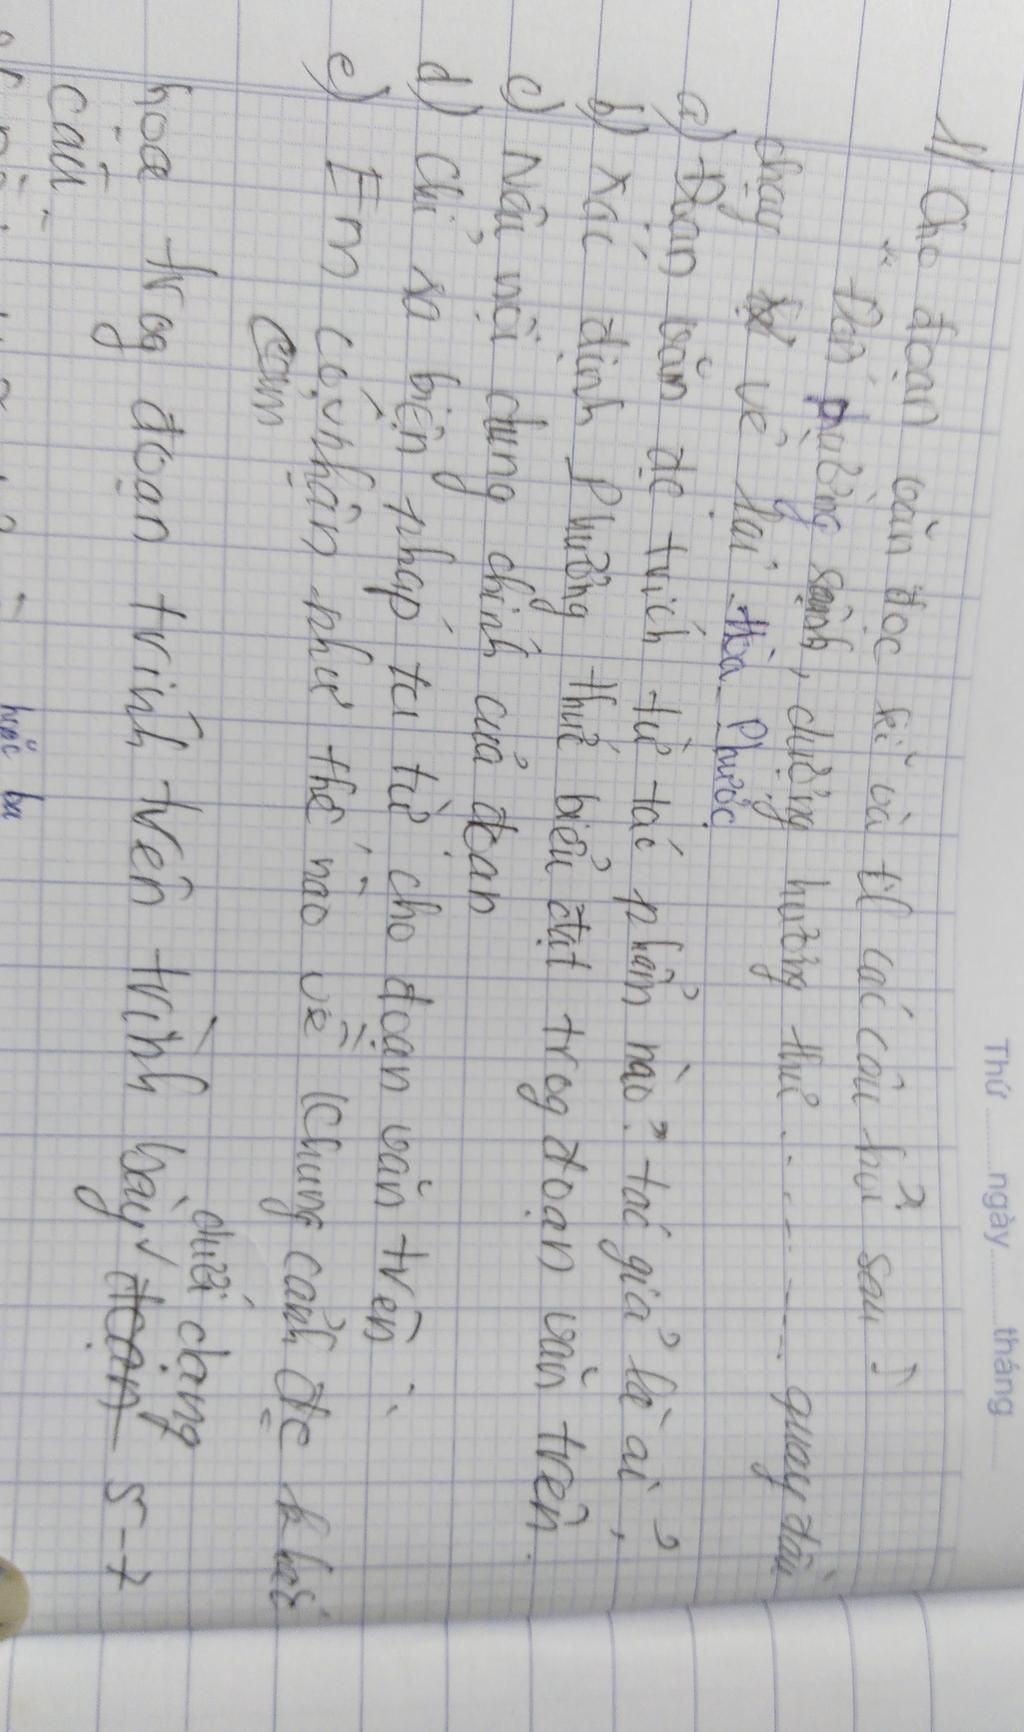 Thứ ........ ngày ........ tháng ........
1/ Cho đoạn văn đọc kĩ và tll các câu hỏi sau!
" Đến phường sạnh, dượng hương thư ........... quay đầu
chạy về lại Hòa Phước
a) Đoạn văn đc trích từ tác phẩm nào? tác giả là ai?
b) Xác định Phương thức biểu đạt trog đoạn văn trên.
c) Nêu nội dung chính của đoạn
d) Chỉ ra biện pháp tu từ cho đoạn văn trên.
e) Em có cảm nhận như thế nào về (Chung cảnh đc khắc
họa trog đoạn trính trên trình bày dưới dạng 5-7
câu.
hước ba